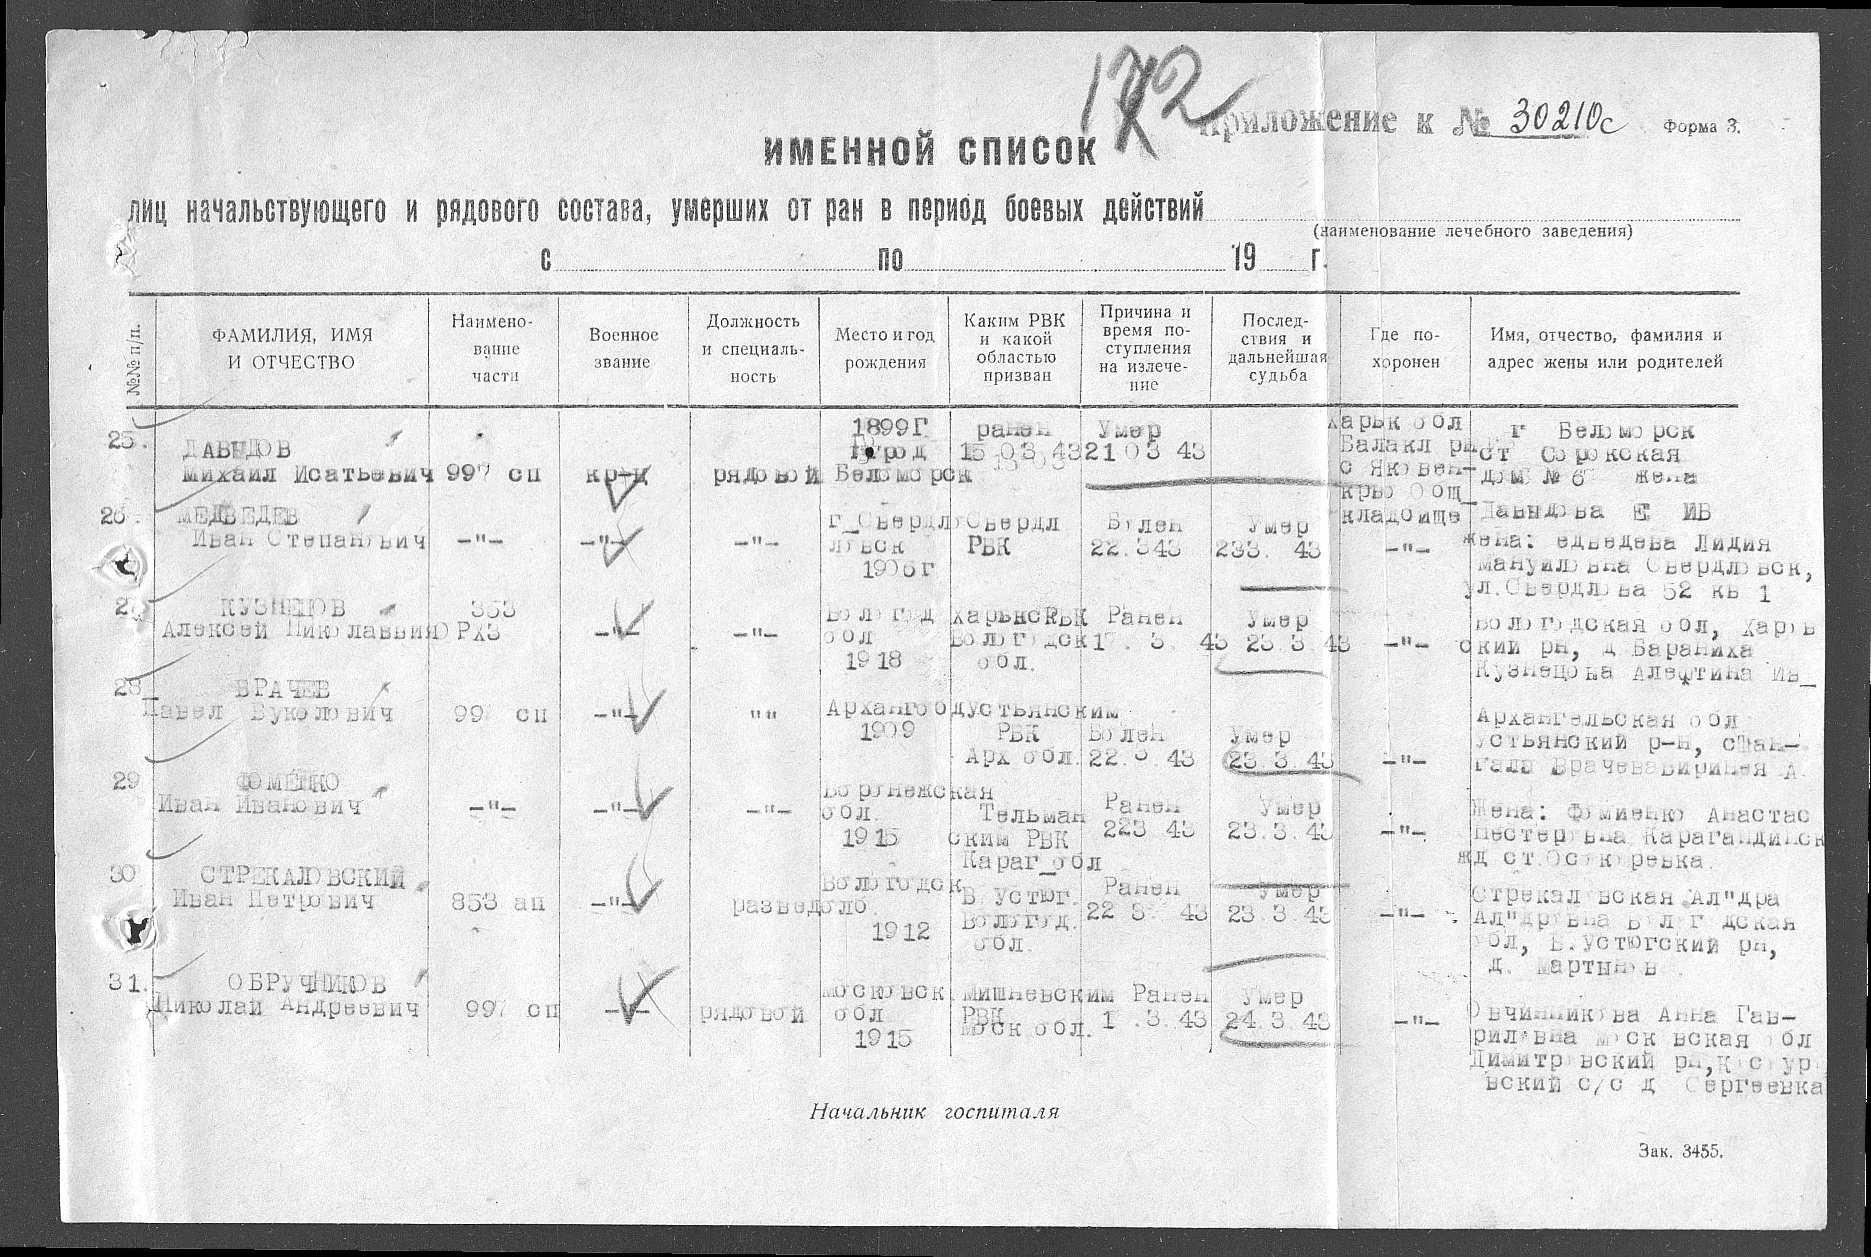 172
Приложение к № 30210с Форма 3.
ИМЕННОЙ СПИСОК
лиц начальствующего и рядового состава, умерших от ран в период боевых действий
(наименование лечебного заведения)
с по 19 г.
№№ п/п.
ФАМИЛИЯ, ИМЯ
И ОТЧЕСТВО
Наимено-
вание
части
Военное
звание
Должность
и специаль-
ность
Место и год
рождения
Каким РВК
и какой
областью
призван
Причина и
время по-
ступления
на излече-
ние
Послед-
ствия и
дальнейшая
судьба
Где по-
хоронен
Имя, отчество, фамилия и
адрес жены или родителей
25.
ДАВЫДОВ
Михаил Исатьевич
997 сп
кр-ц
рядовой
1899Г
город
Беломорск
ранен
15 03 43
Умер
21 03 43
Харьк обл
Балакл рн
с Яковен-
общ
кладбище
г Беломорск
ст Сорокская
дом № 6 жена
Давыдова Е ИВ
26.
МЕДВЕДЕВ
Иван Степанович
-"-
-"-
-"-
г_Сверд
ловск
1906г
Свердл
РВК
Болен
22.343
Умер
233. 43
-"-
Жена: едведева Лидия
Мануиловна Свердловск,
ул.Свердлова 52 кв 1
КУЗНЕЦОВ
Алексей
353
РХЗ
-"-
-"-
Вологод
обл
1918
Вологодск
обл.
Ранен
3. 43
Умер
23 3 43
-"-
Вологодская обл, Харов
ский рн, д Бараниха
Кузнецова Алефтина Ив_
28_
БРАЧЕВ
Павел Вуколович
99 сп
-"-
""
Арханг
1909
устьянским
РВК
Арх обл.
Болен
22.3 43
Умер
23.3.43
-"-
Архангельская обл
Устьянский р-н,
29
ФОМЕНКО
Иван Иванович
-"-
-"-
-"-
Воронежская
обл.
1915
Тельман
ским РВК
Караг_обл
Ранен
223 43
Умер
23.3.43
-"-
Жена: Анастас
Нестеровна Карагандинск
жд ст.
30
СТРЕКАЛОВСКИЙ
Иван Петрович
853 ап
-"-
развед
Вологодск
обл.
1912
В Устюг.
Вологод.
обл.
Ранен
22 3 43
Умер
23.3.43
-"-
Стрекаловская Ал"дра
обл, В.Устюгский рн,
д. Мартынов
31.
ОБРУЧНИКОВ
Николай Андреевич
997 сп
рядовой
Московск
обл
1915
Мишневским
РВК
Моск обл.
Ранен
.3.43
Умер
24.3.43
-"-
Овчинникова Анна Гав-
риловна Московская обл
Димитровский рн,
вский с/с д Сергеевка
Начальник госпиталя
Зак. 3455.